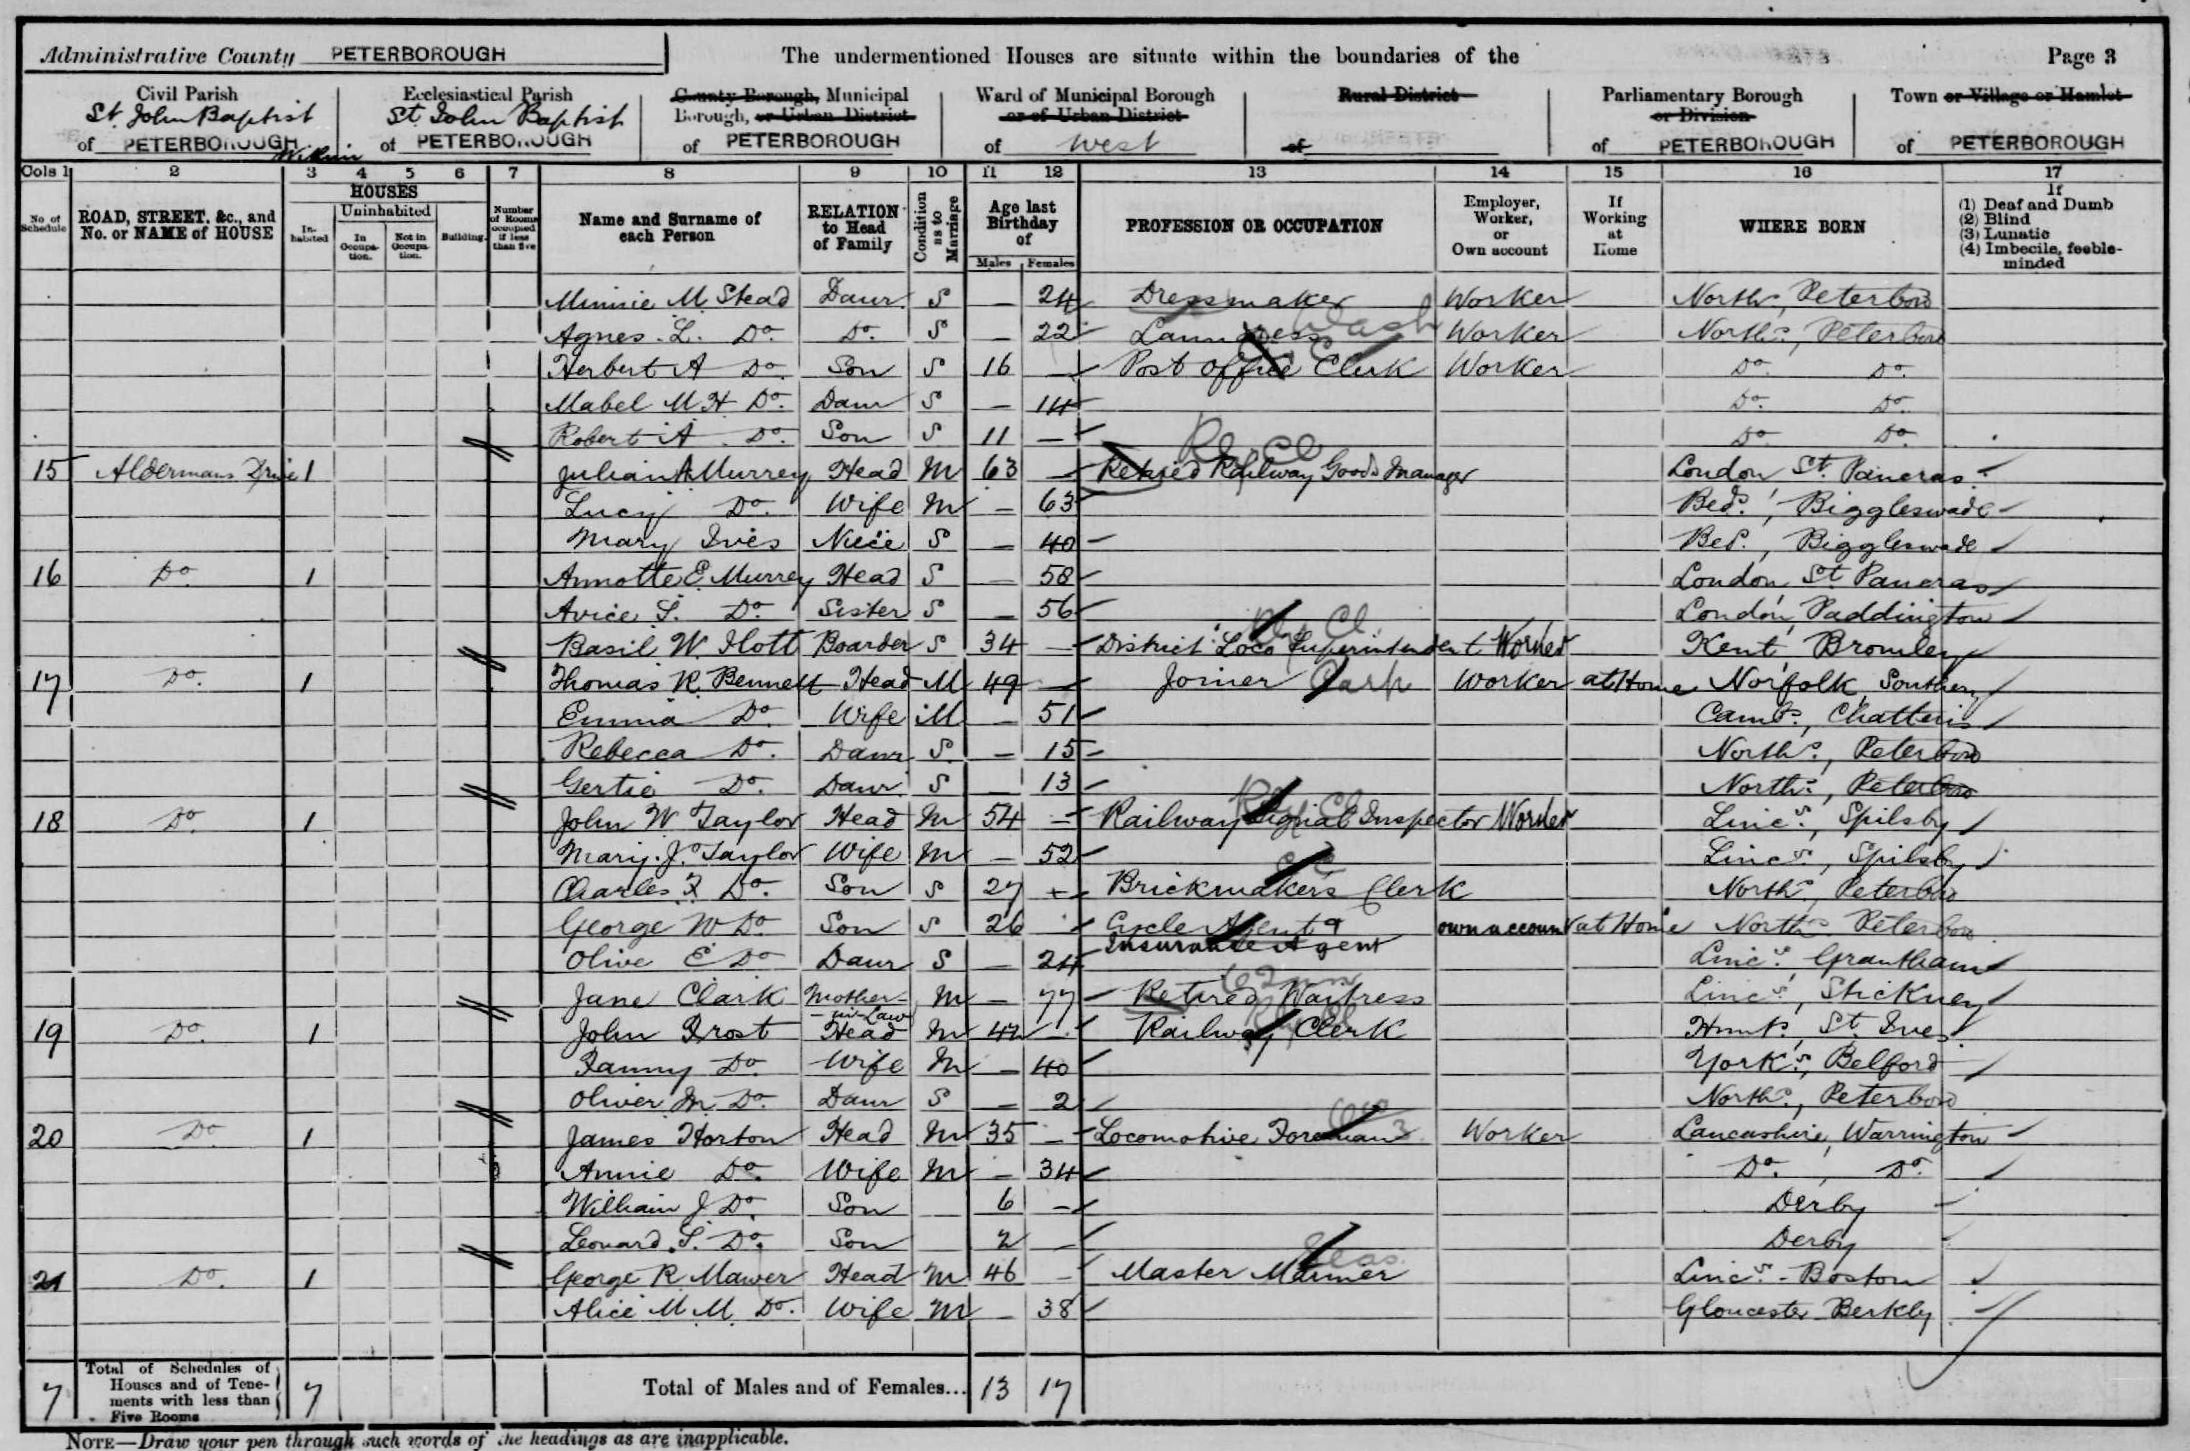 Administrative County PETERBOROUGH The undermentioned Houses are situate within the boundaries of the Page 3
Civil Parish Ecclesiastical Parish County Borough, Municipal Ward of Municipal Borough Rural District Parliamentary Borough Town or Village or Hamlet
St. John Baptist St. John Baptist Borough, or Urban District or of Urban District or Division
of PETERBOROUGH of PETERBOROUGH of PETERBOROUGH of West of of PETERBOROUGH of PETERBOROUGH
Within
Cols 1 2 3 4 5 6 7 8 9 10 11 12 13 14 15 16 17
No of Schedule
ROAD, STREET, &c., and No. or NAME of HOUSE
HOUSES
Inhabited
Uninhabited
In Occupation.
Not in Occupation.
Building.
Number of Rooms occupied if less than five
Name and Surname of each Person
RELATION to Head of Family
Condition as to Marriage
Age last Birthday of
Males Females
PROFESSION OR OCCUPATION
Employer, Worker, or Own account
If Working at Home
WHERE BORN
If
(1) Deaf and Dumb
(2) Blind
(3) Lunatic
(4) Imbecile, feeble-minded
Minnie M Stead Daur S — 24 Dressmaker Worker Norths, Peterboro
Agnes L. Do. Do. S — 22 Laundress Wash Worker Norths., Peterboro
Herbert A Do. Son S 16 — Post Office Clerk Worker Do. Do.
Mabel M H Do. Daur S — 14 Do. Do.
Robert A Do. Son S 11 — Do. Do.
15 Aldermans Drive 1 Julian A Murrey Head M 63 — Retired Railway Goods Manager London, St. Pancras
Lucy Do. Wife M — 63 Beds., Biggleswade
Mary Ives Niece S — 40 Beds., Biggleswade
16 Do. 1 Annotte E Murrey Head S — 58 London St Pancras
Avice S. Do. Sister S — 56 London, Paddington
Basil W. Ilott Boarder S 34 — District Loco Superintendent Worker Kent Bromley
17 Do. 1 Thomas R. Bennett Head M 49 — Joiner Carp Worker at Home Norfolk, Southery
Emma Do. Wife M — 51 Cambs., Chatteris
Rebecca Do. Daur S — 15 Norths., Peterboro
Gertie Do. Daur S — 13 Norths., Peterboro
18 Do. 1 John W Taylor Head M 54 — Railway Signal Inspector Worker Lincs., Spilsby
Mary J. Taylor Wife M — 52 Lincs., Spilsby
Charles F Do. Son S 27 — Brickmakers Clerk Norths., Peterboro
George W Do Son S 26 Cycle Agent & own account at Home Norths. Peterboro
Insurance Agent
Olive E Do Daur S — 24 Lincs. Grantham
Jane Clark Mother-in-Law M — 77 Retired Waitress Lincs., Stickney
19 Do. 1 John Frost Head M 42 — Railway Clerk Hunts., St. Ives
Fanny Do. Wife M — 40 Yorks., Belford
Oliver M Do. Daur S — 2 Norths., Peterboro
20 Do 1 James Horton Head M 35 — Locomotive Foreman Worker Lancashire, Warrington
Annie Do. Wife M — 34 Do., Do.
William J Do. Son 6 — Derby
Leonard S. Do. Son 2 — Derby
21 Do. 1 George R Mawer Head M 46 — Master Mariner Seas Lincs. - Boston
Alice M M Do. Wife M — 38 Gloucester Berkly
7 Total of Schedules of Houses and of Tenements with less than Five Rooms 7 Total of Males and of Females... 13 17
NOTE—Draw your pen through such words of the headings as are inapplicable.